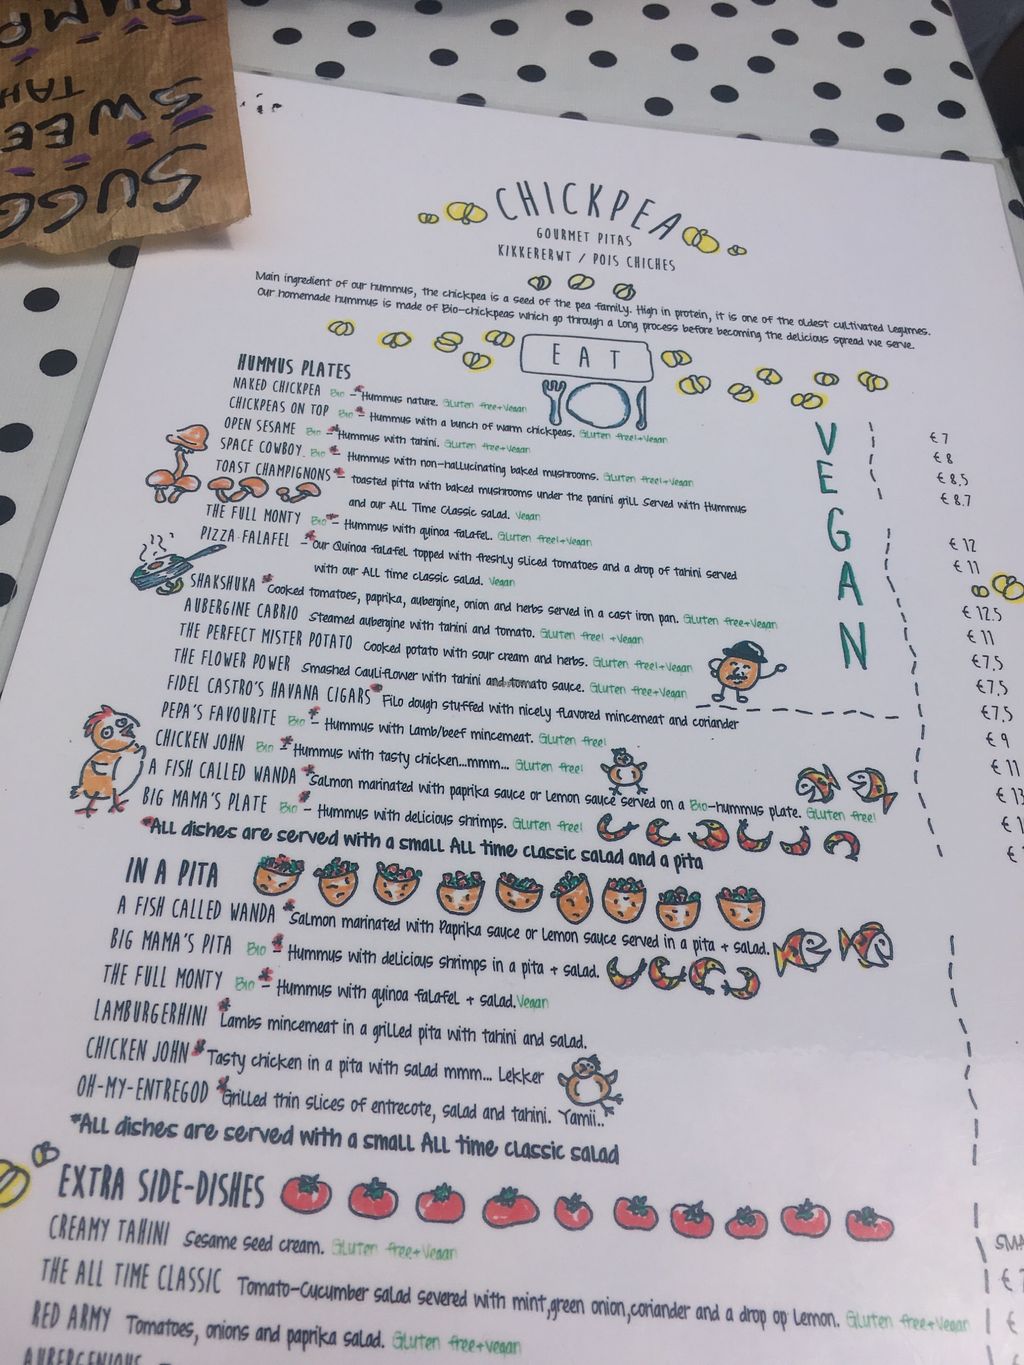 SUGG
SWEE
TAH
CHICKPEA
GOURMET PITAS
KIKKERERWT / POIS CHICHES
Main ingredient of our hummus, the chickpea is a seed of the pea family. High in protein, it is one of the oldest cultivated legumes.
Our homemade hummus is made of Bio-chickpeas which go through a long process before becoming the delicious spread we serve.
EAT
VEGAN
HUMMUS PLATES
NAKED CHICKPEA Bio *- Hummus nature. Gluten free+Vegan € 7
CHICKPEAS ON TOP Bio *- Hummus with a bunch of warm chickpeas. Gluten free!+Vegan € 8
OPEN SESAME Bio -* Hummus with tahini. Gluten free+Vegan € 8,5
SPACE COWBOY. Bio *- Hummus with non-hallucinating baked mushrooms. Gluten free!+Vegan € 8,7
TOAST CHAMPIGNONS *- toasted pitta with baked mushrooms under the panini grill Served with Hummus
and our ALL Time Classic salad. Vegan € 12
THE FULL MONTY Bio *- Hummus with quinoa falafel. Gluten free!+Vegan € 11
PIZZA-FALAFEL -* our Quinoa falafel topped with freshly sliced tomatoes and a drop of tahini served
with our ALL time classic salad. Vegan € 12.5
SHAKSHUKA * Cooked tomatoes, paprika, aubergine, onion and herbs served in a cast iron pan. Gluten free+Vegan € 11
AUBERGINE CABRIO Steamed aubergine with tahini and tomato. Gluten free! +Vegan € 7,5
THE PERFECT MISTER POTATO Cooked potato with sour cream and herbs. Gluten free!+Vegan € 7,5
THE FLOWER POWER Smashed Cauliflower with tahini and tomato sauce. Gluten free+Vegan € 7,5
FIDEL CASTRO'S HAVANA CIGARS * Filo dough stuffed with nicely flavored mincemeat and coriander € 9
PEPA'S FAVOURITE Bio *- Hummus with Lamb/beef mincemeat. Gluten free! € 11
CHICKEN JOHN Bio *- Hummus with tasty chicken...mmm... Gluten free!
A FISH CALLED WANDA * Salmon marinated with paprika sauce or Lemon sauce served on a Bio-hummus plate. Gluten free!
BIG MAMA'S PLATE Bio *- Hummus with delicious shrimps. Gluten free!
*ALL dishes are served with a small ALL time classic salad and a pita
IN A PITA
A FISH CALLED WANDA * Salmon marinated with Paprika sauce or Lemon sauce served in a pita + salad.
BIG MAMA'S PITA Bio *- Hummus with delicious shrimps in a pita + salad.
THE FULL MONTY Bio *- Hummus with quinoa falafel + salad. Vegan
LAMBURGERHINI * Lambs mincemeat in a grilled pita with tahini and salad.
CHICKEN JOHN * Tasty chicken in a pita with salad mmm... Lekker
OH-MY-ENTREGOD * Grilled thin slices of entrecote, salad and tahini. Yamii..
*ALL dishes are served with a small ALL time classic salad
EXTRA SIDE-DISHES
CREAMY TAHINI Sesame seed cream. Gluten free+Vegan
THE ALL TIME CLASSIC Tomato-Cucumber salad severed with mint,green onion,coriander and a drop op Lemon. Gluten free+Vegan
RED ARMY Tomatoes, onions and paprika salad. Gluten free+vegan